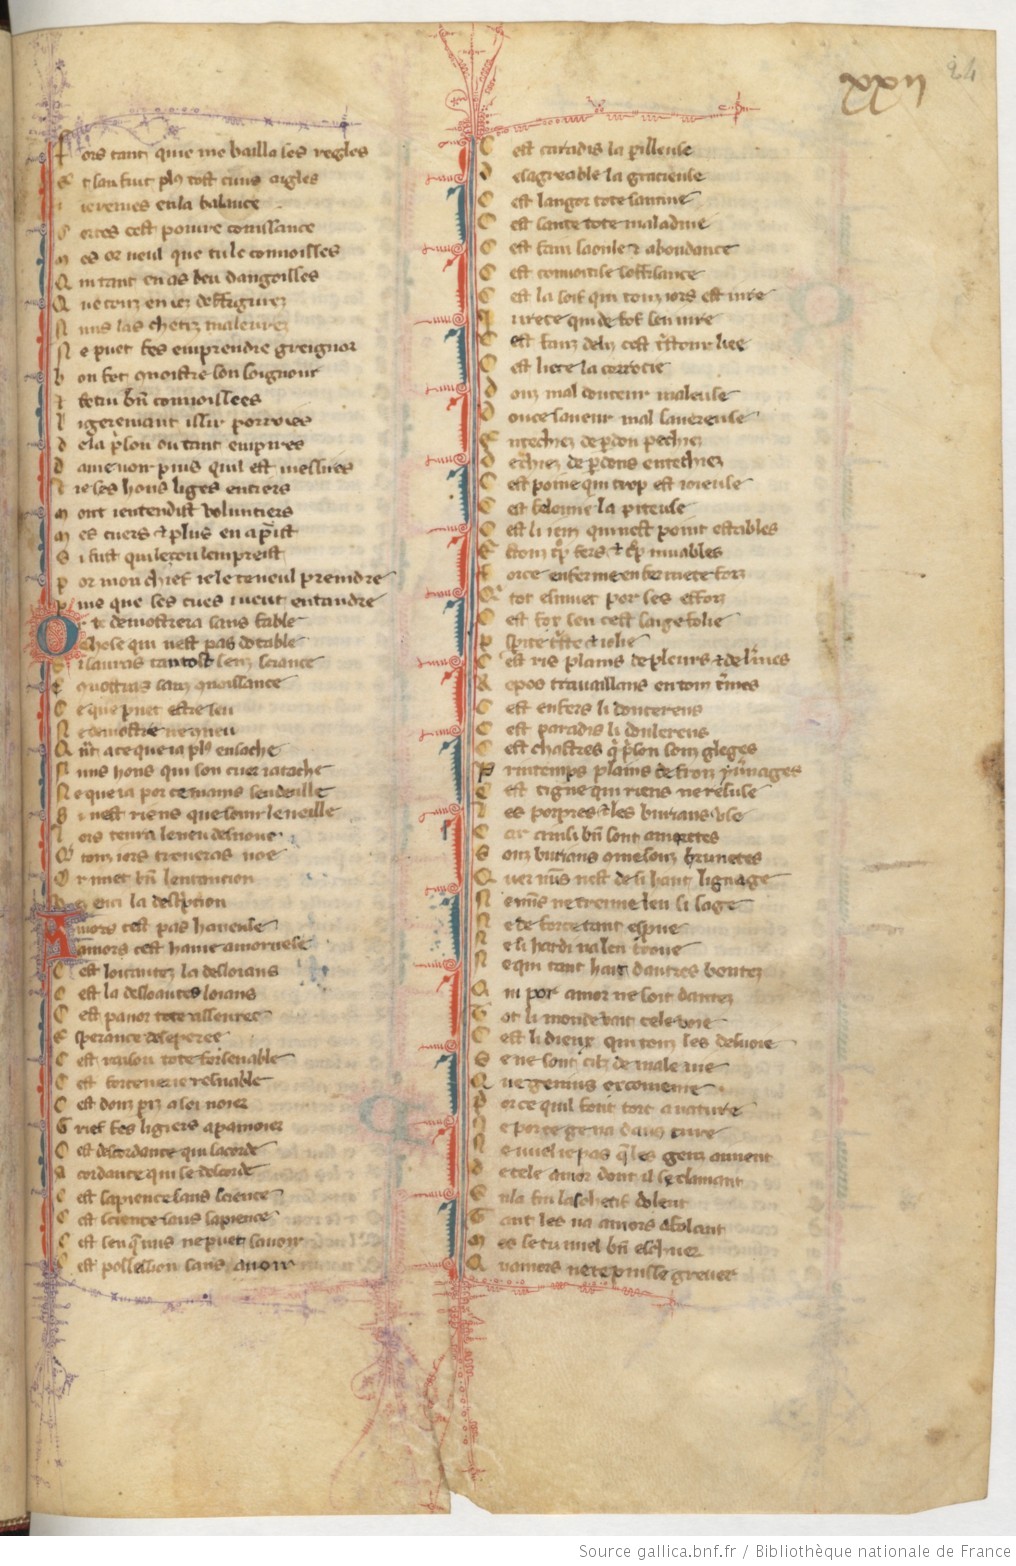 xxii
24
Fors tant que me bailla les regles
Et san fuit pl9 tost cuns aigles
i ie remes en la balance
Certes cest povre conissance
Mes or veul que tu le connoisses
Qui tant en as beu dangoisses
Que touz en iez deffigurez
Nuns las chetiz maleurez
Ne puet fes emprendre greignor
bon fet quoistre son seignour
Et se tu bn connoissees
Ligeremant issir porroies
de la pson ou tant empires
dame non puis quil est mes sires
Et ie ses hons liges entiers
Mont i entendist voluntiers
Mes cuers et plus en apist
Si fust qui lecon lempreist
Por mon chief ie le te veul prendre
Puis que tes cues i veut entandre
Or te demostrera sans fable
Chose qui nest pas dotable
Si sauras tantost senz sciance
Et quostras sanz quoissance
Ce que puet estre seu
Ne demostre ne queu
Quant a ce que ia pl9 en sache
Nuns hons qui son cuer i atache
Ne que ia por ce mains sen deille
Si nest riens que souir le veille
Lors tenra le neu desnoue
Que touz iors troveras noe
Or i met bn lentancion
Vez enci la descpcion
Amors cest pas haneuse
Amors cest haine amoreuse
Cest loiautez la desloiaus
Cest la desloautes loiaus
Cest pauor tote asseuree
Esperance desesperee
Cest raison tote forsenable
Cest forcenerie resnable
Cest douz piz a soi noier
Grief fes ligiers a paumoier
Cest descordance qui sacorde
Acordance qui se descorde
Cest sapience sans science
Cest science sans sapience
Cest sen q nuns ne puet savoir
Cest possession sans avoir
Cest caradis la pilleuse
Desagreable la gracieuse
Cest langor tote santine
Cest sante tote maladiue
Cest fain saoule et abondance
Cest convoitise soffisance
Cest la soif qui touz iors est iure
Iurece qui de soif sen iure
Cest
Cest
Douz mal douceur maleuse
Douce saveur mal savereuse
Entechiez de pdon pechiez
De pechiez de pdons entechiez
Cest poine qui trop est ioieuse
Cest felonnie la piteuse
Cest li ieuz qui nest point estables
Estouz tp fers et tp muables
Force enferme enfermete forz
Qui tot esmuet por ses efforz
Cest fox sen cest saige folie
Pspite tste et iolie
Cest ris plains de pleurs et de lmes
Repos travaillans en touz tmes
Cest enfers li doucereus
Cest paradis li doulereus
Cest chastres q pson soulz
Printemps plains de froiz yvnages
Cest tigne qui riens ne refuse
Les porpres et les buriaus vse
Car ausi bn sont amoretes
Souz buriaus come souz brunetes
Quer nuns nest de si haut lignage
Ne nuns ne treuue len si sage
Ne de force tant espue
Ne si hardi na len troue
Ne qui tant hait dautres bontez
Qui por amor ne soit dantez
Tot li mondes vait cele voie
Cest li dieux qui touz les desuoie
Se ne sont cilz de male vie
Que genius excomenie
Por ce quil font tort a nature
Ne por ce ge na dauz cure
Ne vuel ie pas q les genz aiment
De cele amor dont il se claimant
En la fin las chetif dolent
Tant les va amors afolant
Mes se tu viels bn eschiver
Quamors ne te puisse grever
Source gallica.bnf.fr / Bibliothèque nationale de France